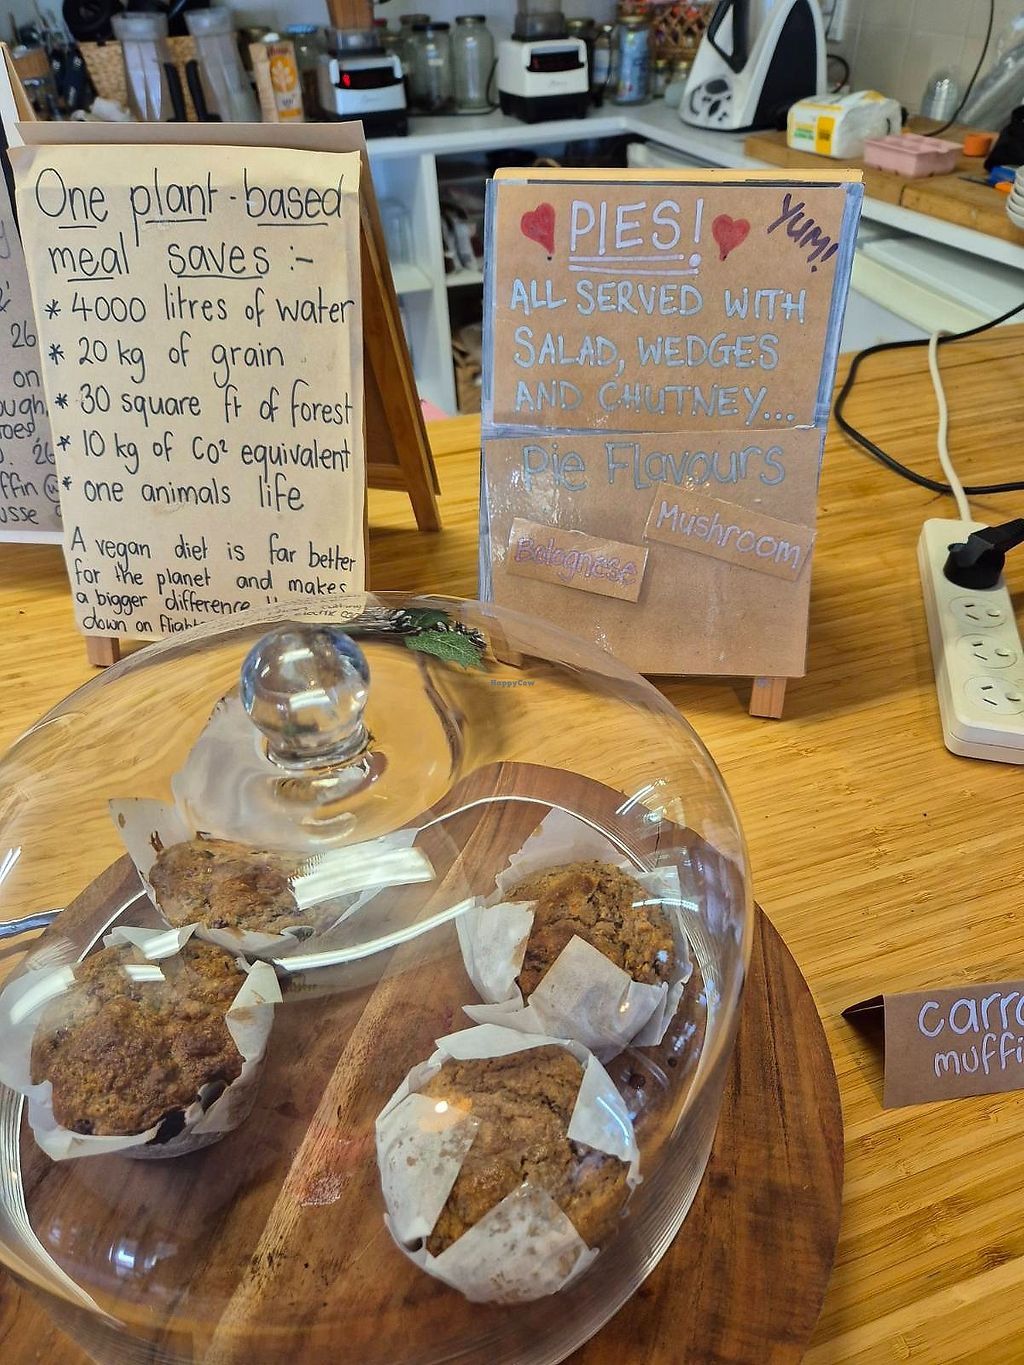 One plant-based
meal saves :-
* 4000 litres of water
* 20 kg of grain
* 30 square ft of forest
* 10 kg of Co² equivalent
* one animals life
A vegan diet is far better
for the planet and makes
a bigger difference
down on
PIES!
YUM!
ALL SERVED WITH
SALAD, WEDGES
AND CHUTNEY...
Pie Flavours
Mushroom
Bolognese
HappyCow
26
on
26